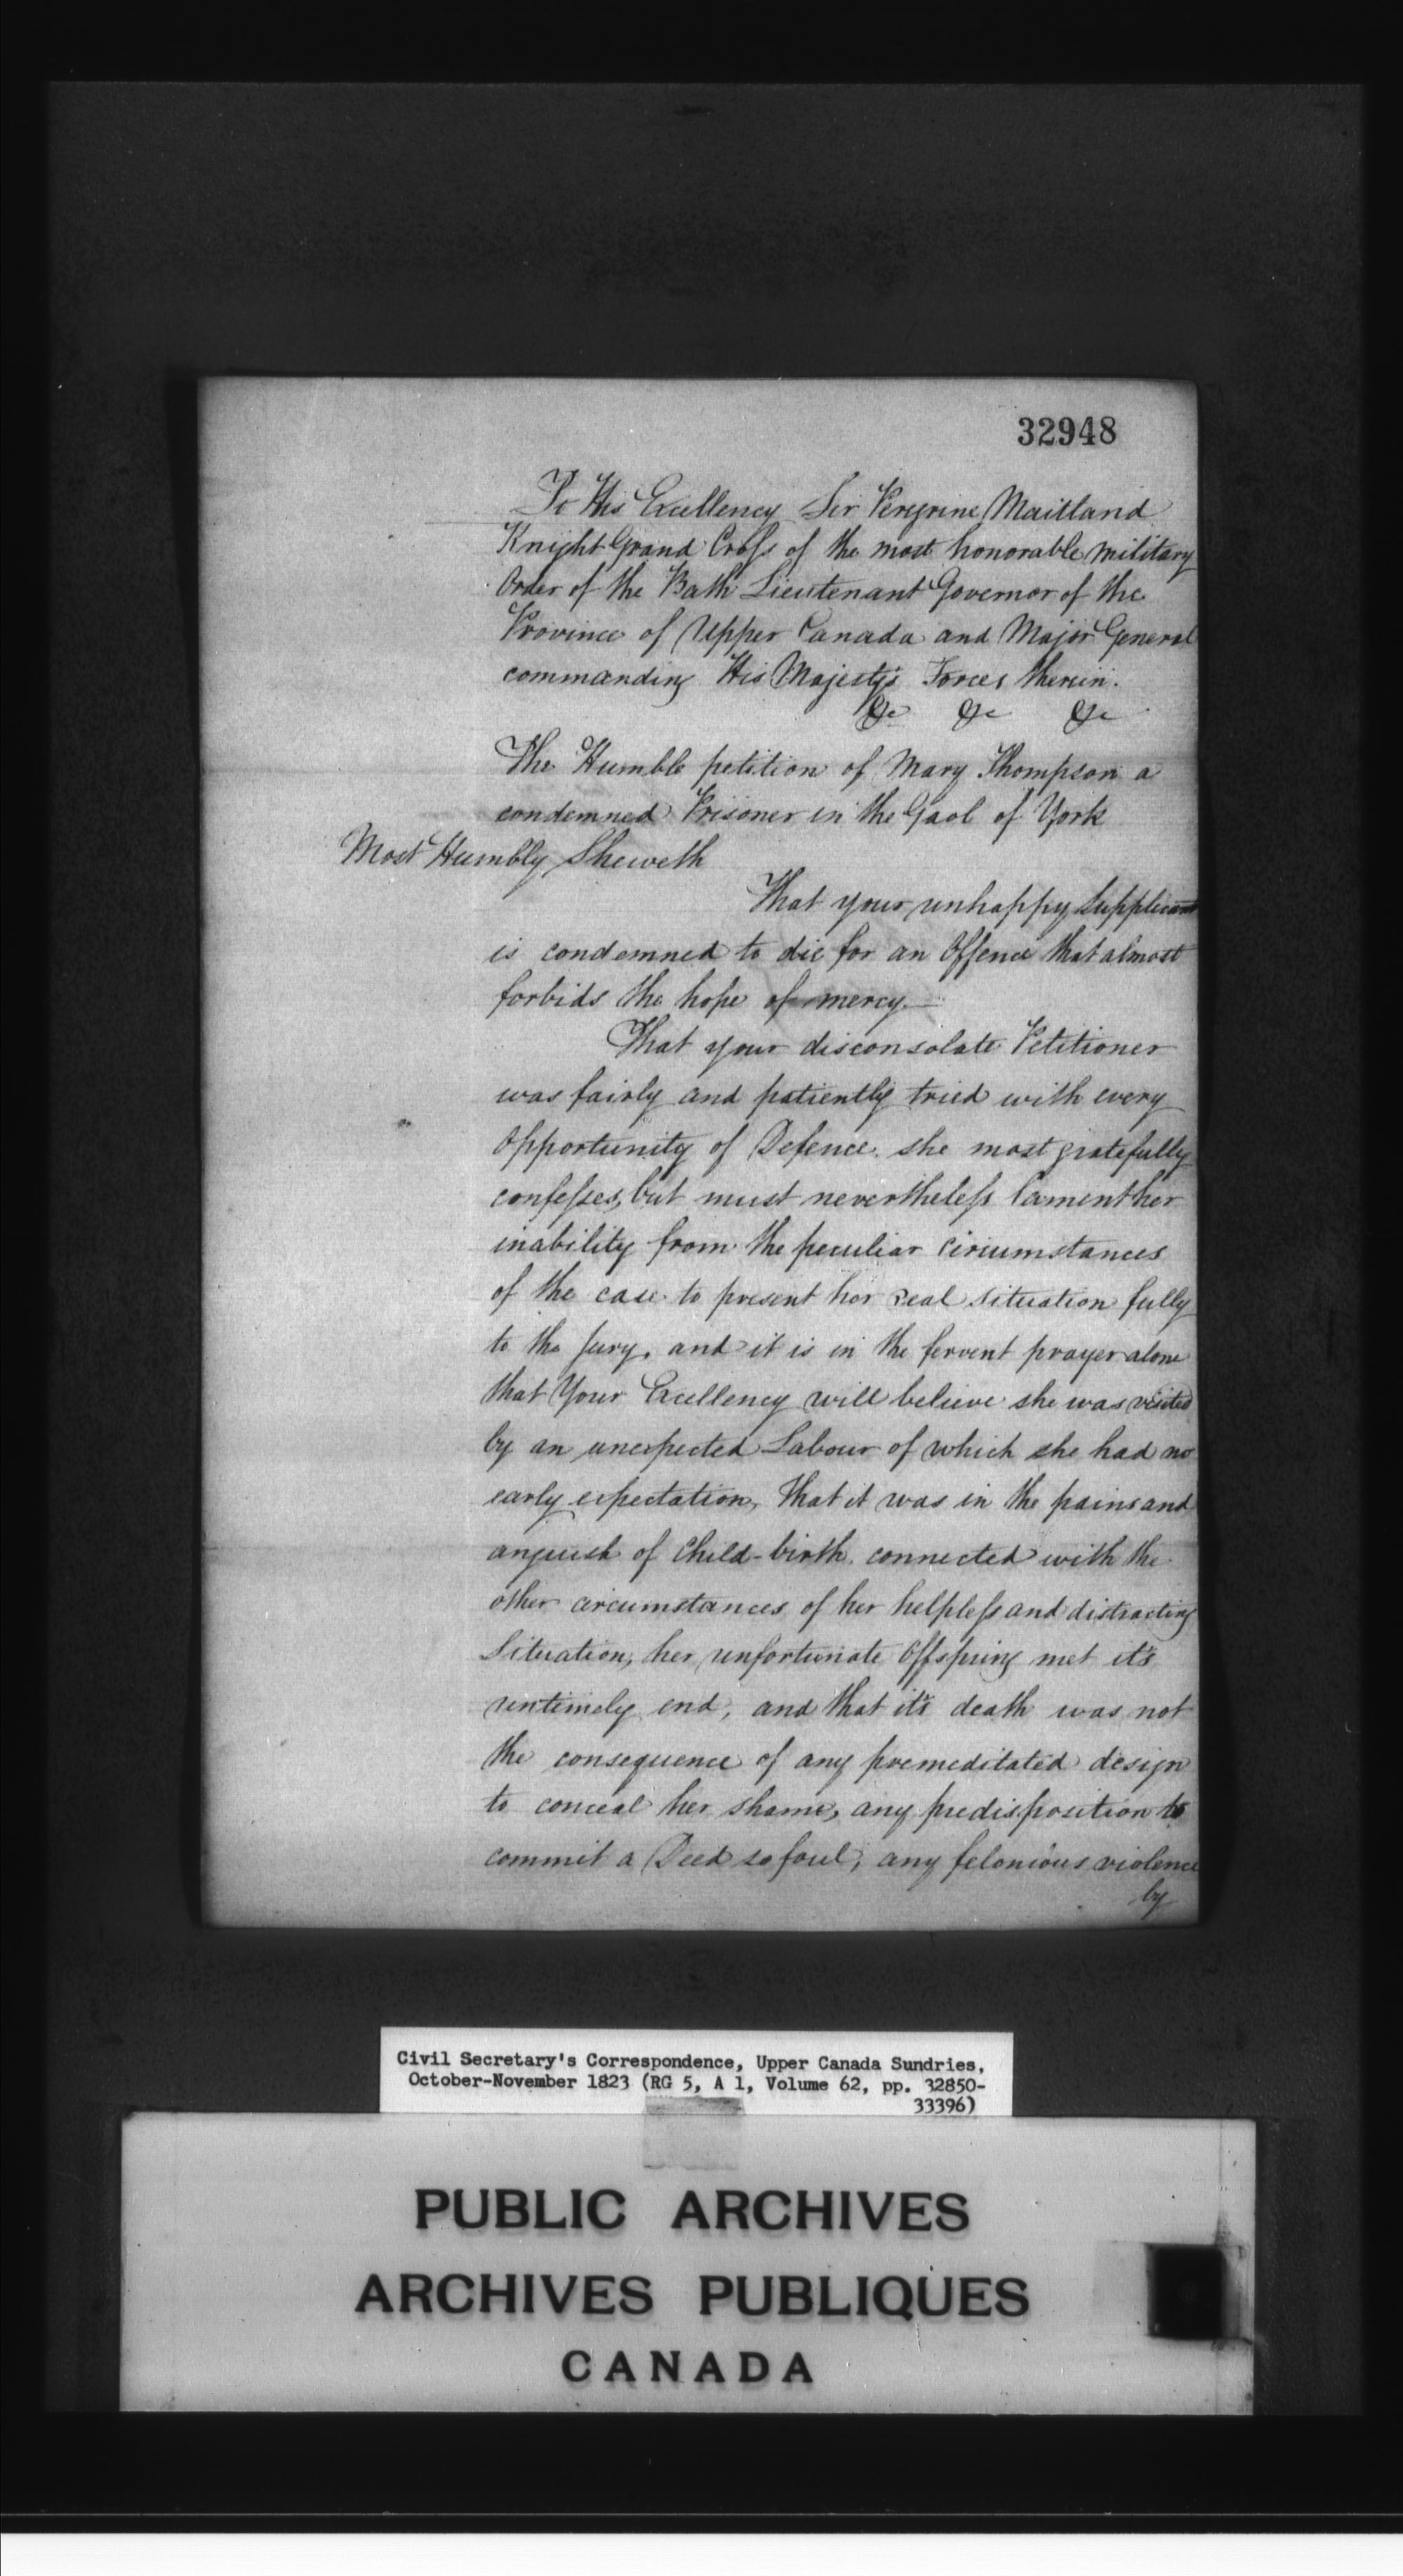 32948
To His Excellency Sir Peregrine Maitland
Knight Grand Cross of the most honorable military
Order of the Bath Lieutenant Governor of the
Province of Upper Canada and Major General
commanding His Majesty's Forces therein.
&c &c &c
The Humble petition of Mary Thompson a
condemned Prisoner in the Gaol of York
Most Humbly Sheweth
That your unhappy Supplicant
is condemned to die for an Offence that almost
forbids the hope of mercy.—
That your disconsolate Petitioner
was fairly and patiently tried with every
Opportunity of Defence. she most gratefully
confesses, but must nevertheless lament her
inability from the peculiar circumstances
of the case to present her real situation fully
to the Jury, and it is in the fervent prayer alone
that Your Excellency will believe she was visited
by an unexpected Labour of which she had no
early expectation, That it was in the pains and
anguish of Child-birth. connected with the
other circumstances of her helpless and distracting
Situation, her unfortunate Offspring met it's
untimely end, and that it's death was not
the consequence of any premeditated design
to conceal her shame, any predisposition to
commit a Deed so foul, any felonious violence
by
Civil Secretary's Correspondence, Upper Canada Sundries,
October-November 1823 (RG 5, A 1, Volume 62, pp. 32850-
33396)
PUBLIC ARCHIVES
ARCHIVES PUBLIQUES
CANADA